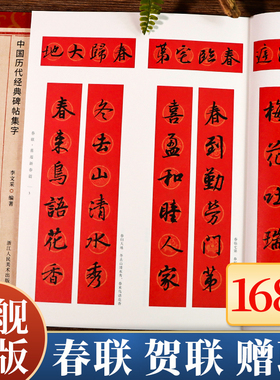 中国历代经典碑帖集字
李文采 编著
浙江人民美术出版
春歸大地
冬去山清水秀
春來鳥語花香
春臨宅第
春到勤勞門第
喜盈和睦人家
梅花吐瑞
168
舰
版
春联 贺联 赠